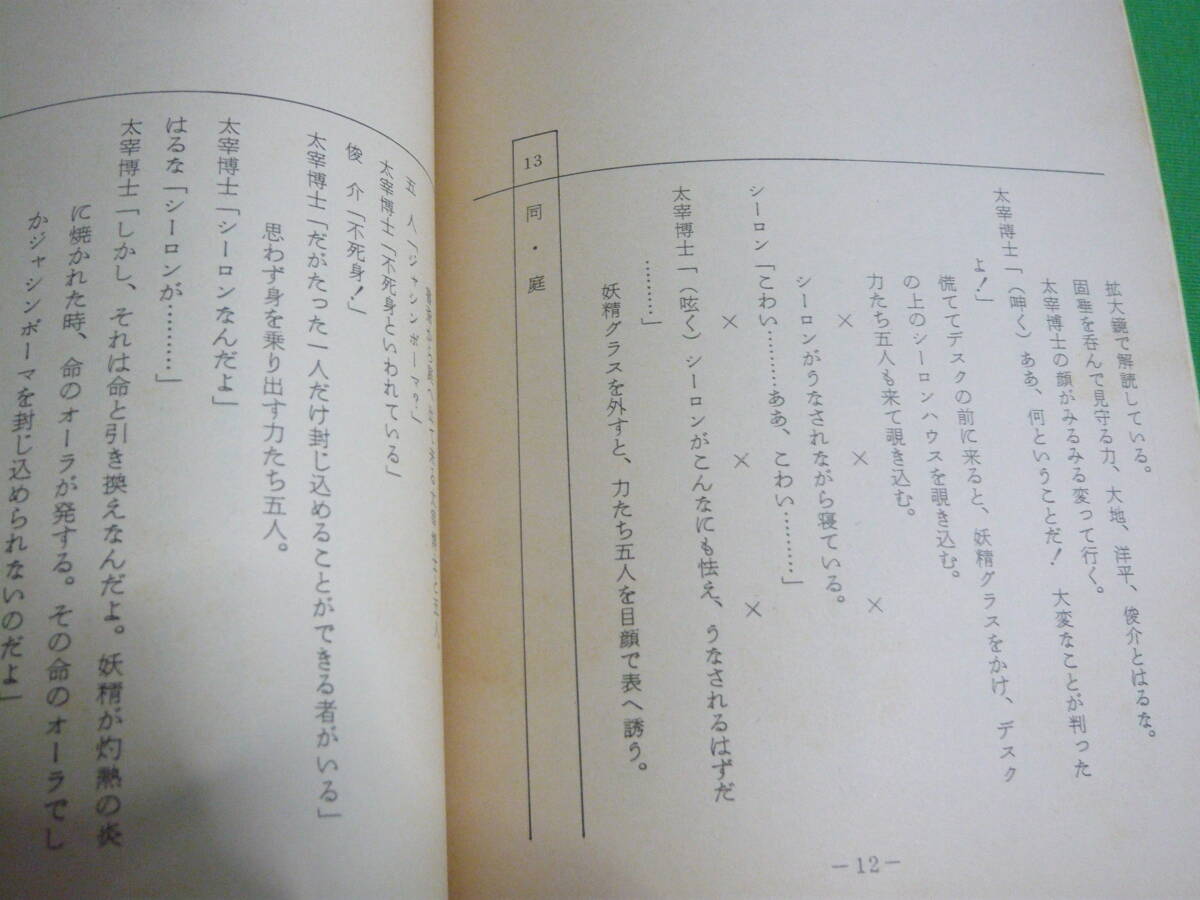 拡大鏡で解読している。
固唾を呑んで見守る力、大地、洋平、俊介とはるな。
太宰博士の顔がみるみる変って行く。
太宰博士「(呻く)ああ、何ということだ! 大変なことが判った
よ!」
慌ててデスクの前に来ると、妖精グラスをかけ、デスク
の上のシーロンハウスを覗き込む。
力たち五人も来て覗き込む。
× × ×
シーロンがうなされながら寝ている。
シーロン「こわい………ああ、こわい………」
× × ×
太宰博士「(呟く)シーロンがこんなにも怯え、うなされるはずだ
………」
妖精グラスを外すと、力たち五人を目顔で表へ誘う。
13 同・庭
-12-
五人「ジャシンボーマ?」
太宰博士「不死身といわれている」
俊介「不死身!」
太宰博士「だがたった一人だけ封じ込めることができる者がいる」
思わず身を乗り出す力たち五人。
太宰博士「シーロンなんだよ」
はるな「シーロンが………」
太宰博士「しかし、それは命と引き換えなんだよ。妖精が灼熱の炎
に焼かれた時、命のオーラが発する。その命のオーラでし
かジャシンボーマを封じ込められないのだよ」